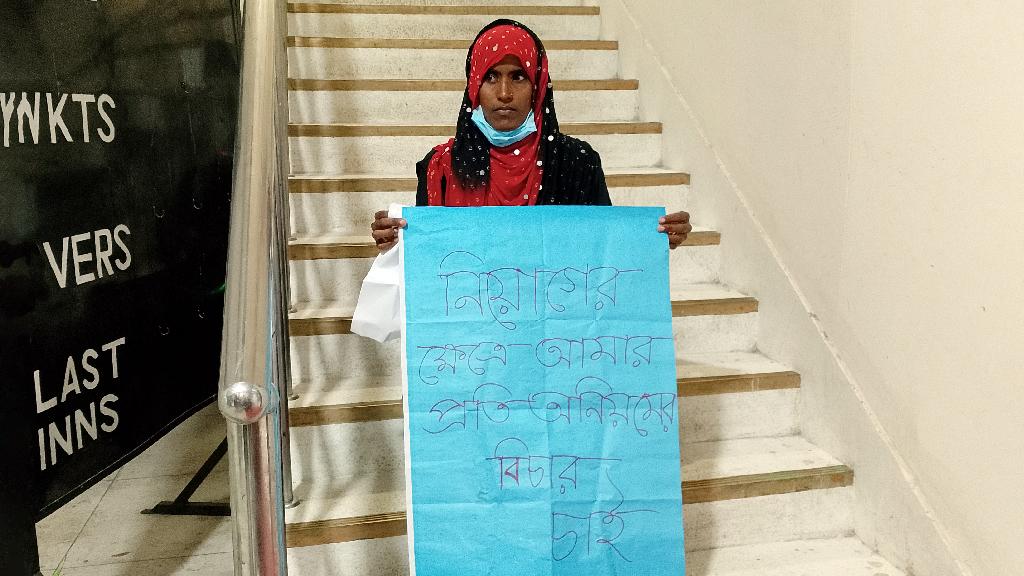 YNKTS
VERS
LAST
INNS
নিয়োগের
ক্ষেত্রে আমার
প্রতি অনিয়মের
বিচার
চাই